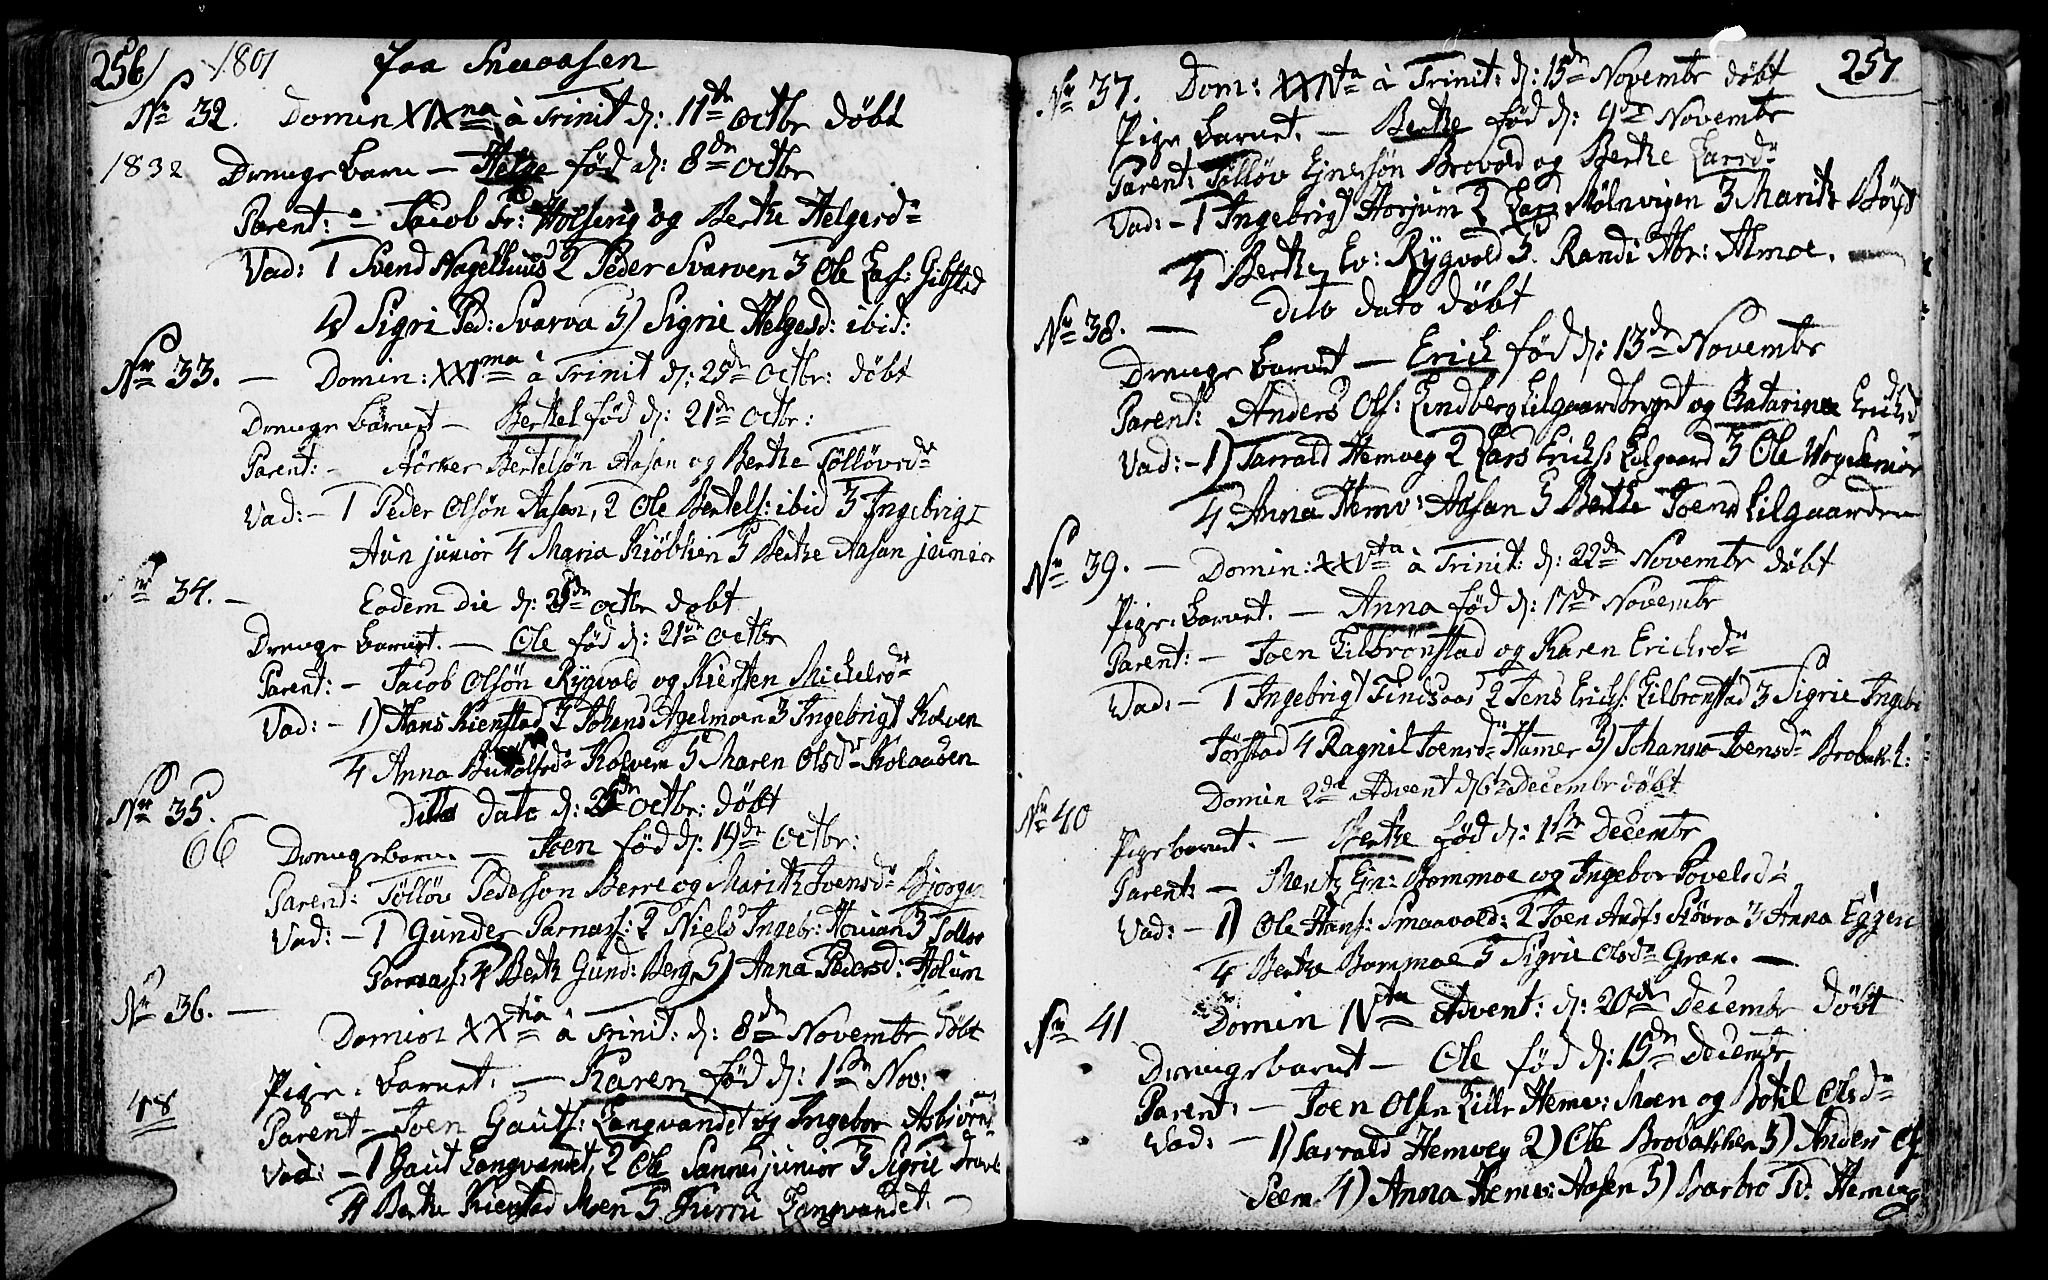 256) 1801 paa Snaasen
No 32. Domin XIXna à Trinit d: 11te Octbr döbt
1832 Drenge barn - Helge fød d: 8de Octbr
Parent: - Jacob Fr: og Berthe Helgersdr
Vad: 1 Svend Nagelhuus 2 Peder Svarven 3 Ole Gifstad
4) Sigri Ped: Svarva 5) Sigrie Helgesd: ibid:
No 33. - Domin: XXIma à Trinit d: 25de Octbr: döbt
Drenge barnet - Bertel fød d: 21de Octbr:
Parent: - Bertelsön Aasan og Berthe Tölløvsdr
Vad: - 1 Peder Olsön Aasan, 2 Ole Bertels: ibid 3 Ingebrigt
Aun junior 4 Maria 5 Berthe Aasan junior
No 34. - Eodem die d: 25de octbr døbt
Drenge barnet. - Ole fød d: 21de Octbr
Parent: - Jacob Olsön Rygvold og Kiersten Michelsdr
Vad: - 1) Hans Kienstad 2 Johans Agelmoen 3 Ingebrigt Kolven
4 Anna Kolvem 5 Maren Olsdr Kolaasen
No 35. Ditto Dato d: 25de Octbr: döbt
66 Drengebarn. - Joen född d: 19de Octbr:
Parent: Tölløv Pederson Berre og Marithe Ivensdr
Vad: - 1 Gunder Parnas: 2 Niels Ingebr: 3 Tollov
Parnas: 4 Berth Gund: Berg 5) Anna Pedersd: Holum
No 36. - Domin XXtia à Trinit: d: 8de Novembr döbt
Pige: barnet. - Karen född d: 1ste Nov:
48 Parent - Joen Gauts: Langvandet og Ingebor Asbjørns
Vad: - 1 Gaut Langvandet, 2 Ole junior 3 Sigrie
4 Berthe Kienstad Moen 5 Gurru Langvandet. -
257
No 37. Dom: XXIVta à Trinit: d: 15de Novembr döbt
Pige barnet. - Berthe född d: 4de Novembr
Parent: Tölløv Ejnersön Brovold og Berthe Larsdr
Vad: - 1 Ingebrigt Horjum 2 Lars Mölnvigen 3 Marith
4 Berthe Ev: Rygvold 5. Randi Abr: Almoe.
No 38. - dito dato döbt
Drenge barnet - Erich född d: 13de Novembr
Parent: Anders Ols: Lindberg Lilgaardbryet og Catarina Erichsd
Vad: - 1) Tarrald Hemveg 2 Lars Erichs: Lilgaard 3 Ole
4 Anna Hemv: Aasan 5 Berthe Joens Lilgaarden
No 39. - Domin: XXVta à Trinit: d: 22de Novembr döbt
Pige: barnet. - Anna född d: 17de Novembr
Parent: - Joen Lilbrönstad og Karen Erichsdr
Vad: - 1 Ingebrigt Finsaas 2 Jens Erichs: Lilbrönstad 3 Sigrie Ingeb
Törstad 4 Ragnil Joensdr Hamer 5) Johanna Joensdr Brobak:
No 40 Domin 2de Advent d: 6te Decembr döbt
Pige barnet. - Berthe född d: 1ste Decembr
Parent: - Mentz Ejn: Bommoe og Ingebor Povelsdr
Vad: - 1) Ole Hans: Smaavold: 2 Joen And: 3 Anna Eggen
4 Berthe Bommoe 5 Sigrie Olsdr Gran. -
No 41 Domin IVta Advent: d: 20de Decembr döbt
Drengebarnet - Ole född d: 15de Decembr
Parent: - Joen Olsen Lille Hemv: Moen og Botil Olsdr
Vad: - 1) Tarrald Hemveg 2) Ole Brobakken 3) Anders Ols
Seem 4) Anna Hemv: Aasen 5) Barbro Hemveg